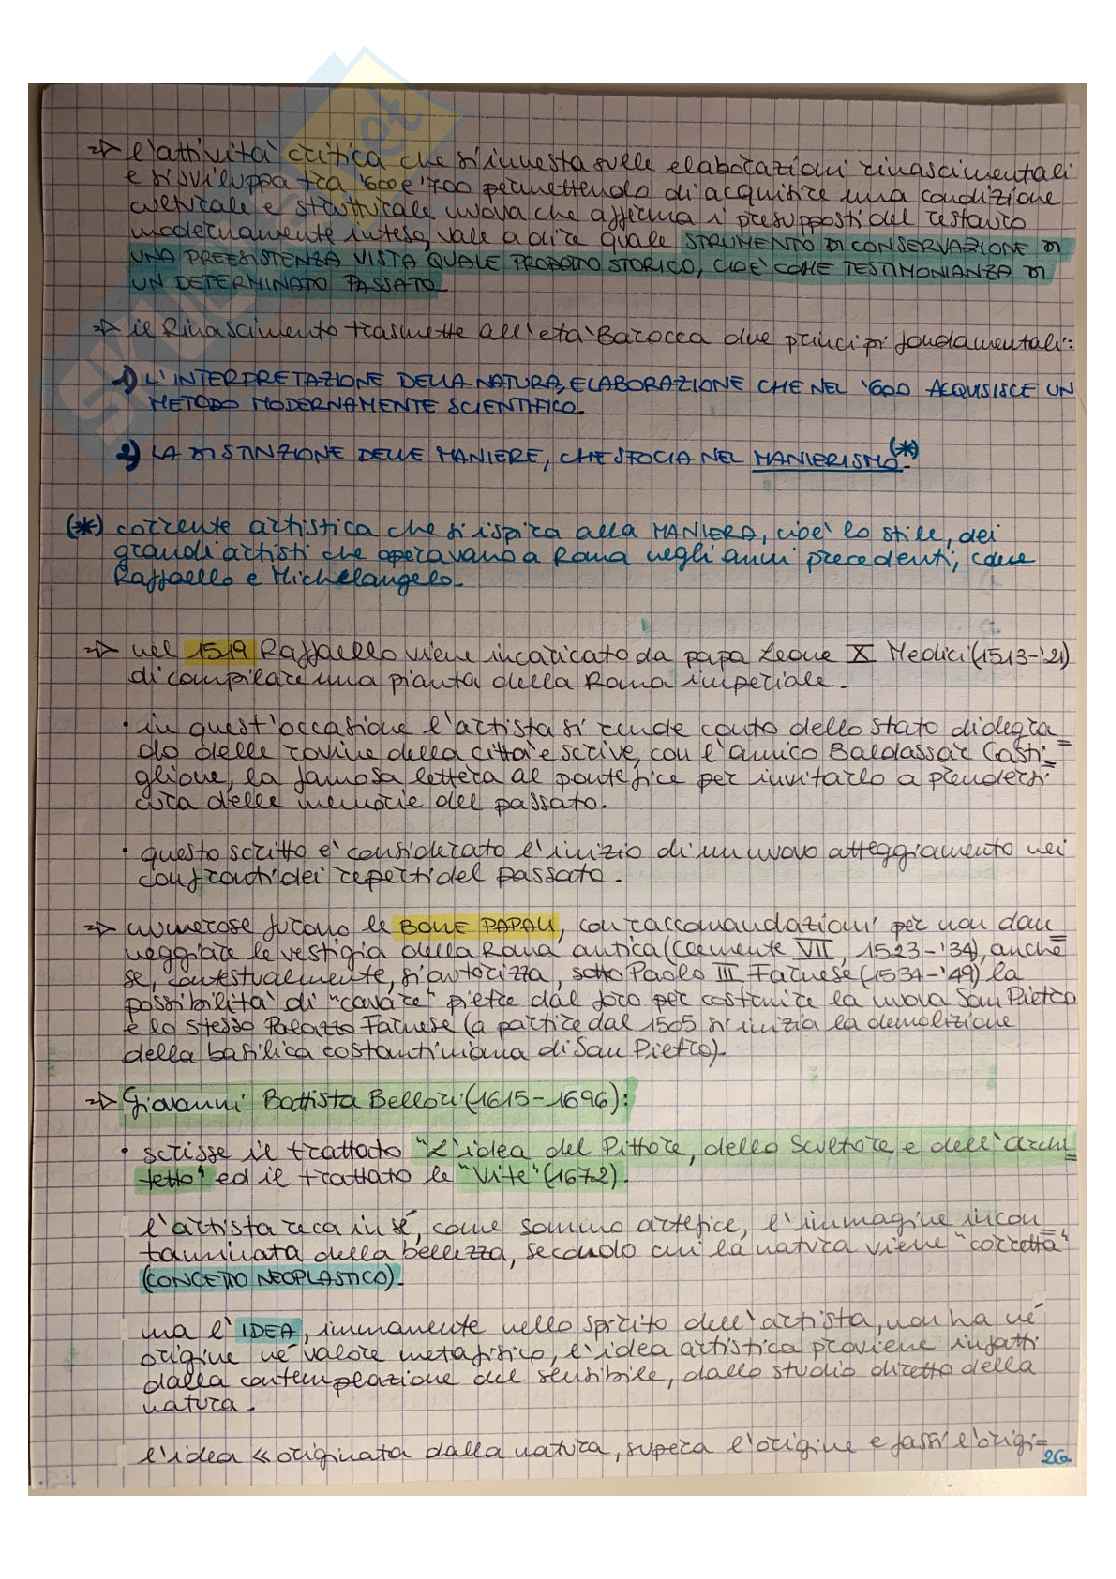 => l'attività critica che si innesta sulle elaborazioni rinascimentali
e si sviluppa tra '600 e '700 permettendo di acquisire una condizione
culturale e strutturale nuova che afferma i presupposti del restauro
modernamente inteso, vale a dire quale STRUMENTO DI CONSERVAZIONE DI
UNA PREESISTENZA VISTA QUALE PRODOTTO STORICO, CIOÈ COME TESTIMONIANZA DI
UN DETERMINATO PASSATO.
=> il Rinascimento trasmette all'età Barocca due principi fondamentali:
1) L'INTERPRETAZIONE DELLA NATURA, ELABORAZIONE CHE NEL '600 ACQUISISCE UN
METODO MODERNAMENTE SCIENTIFICO.
2) LA DISTINZIONE DELLE MANIERE, CHE SFOCIA NEL MANIERISMO (*).
(*) corrente artistica che si ispira alla MANIERA, cioè lo stile, dei
grandi artisti che operavano a Roma negli anni precedenti, come
Raffaello e Michelangelo.
=> nel 1519 Raffaello viene incaricato da papa Leone X Medici (1513-'21)
di compilare una pianta della Roma imperiale.
• in quest'occasione l'artista si rende conto dello stato di degra=
do delle rovine della città e scrive, con l'amico Baldassar Casti=
glione, la famosa lettera al pontefice per invitarlo a prendersi
cura delle memorie del passato.
• questo scritto è considerato l'inizio di un nuovo atteggiamento nei
confronti dei reperti del passato.
=> numerose furono le BOLLE PAPALI, con raccomandazioni per non dan=
neggiare le vestigia della Roma antica (Clemente VII, 1523-'34), anche
se, contestualmente, si autorizza, sotto Paolo III Farnese (1534-'49) la
possibilità di "cavare" pietre dal foro per costruire la nuova San Pietro
e lo stesso Palazzo Farnese (a partire dal 1505 si inizia la demolizione
della basilica costantiniana di San Pietro).
=> Giovanni Battista Bellori (1615-1696):
• scrisse il trattato "L'idea del Pittore, dello Scultore e dell'archi=
tetto" ed il trattato le "Vite" (1672).
l'artista reca in sé, come sommo artefice, l'immagine incon=
taminata della bellezza, secondo cui la natura viene "corretta"
(CONCETTO NEOPLASTICO).
ma l'IDEA, immanente nello spirito dell'artista, non ha né
origine né valore metafisico, l'idea artistica proviene infatti
dalla contemplazione del sensibile, dallo studio diretto della
natura.
l'idea « originata dalla natura, supera l'origine e fassi l'origi=
26